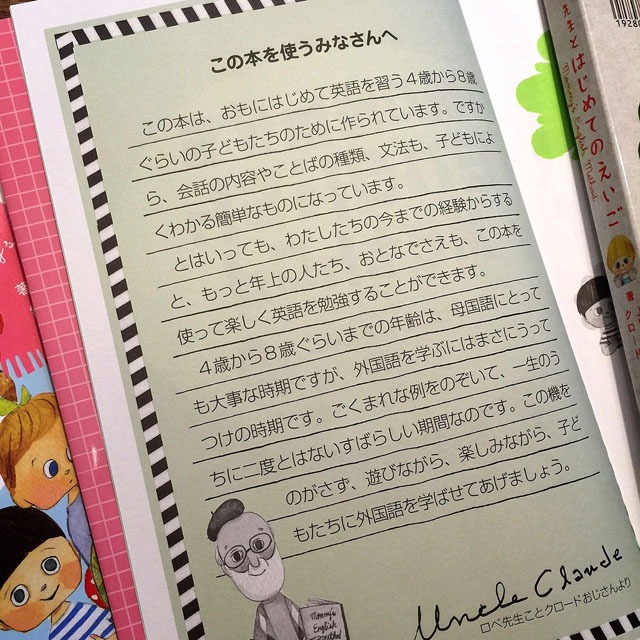 この本を使うみなさんへ
この本は、おもにはじめて英語を習う4歳から8歳
ぐらいの子どもたちのために作られています。ですか
ら、会話の内容やことばの種類、文法も、子どもによ
くわかる簡単なものになっています。
とはいっても、わたしたちの今までの経験からする
と、もっと年上の人たち、おとなでさえも、この本を
使って楽しく英語を勉強することができます。
4歳から8歳ぐらいまでの年齢は、母国語にとって
も大事な時期ですが、外国語を学ぶにはまさにうって
つけの時期です。ごくまれな例をのぞいて、一生のう
ちに二度とはないすばらしい期間なのです。この機を
のがさず、遊びながら、楽しみながら、子ど
もたちに外国語を学ばせてあげましょう。
Uncle Claude
ロベ先生ことクロードおじさんより
Mommy's
English
先生とはじめてのえいご
著 クロード
著
1928